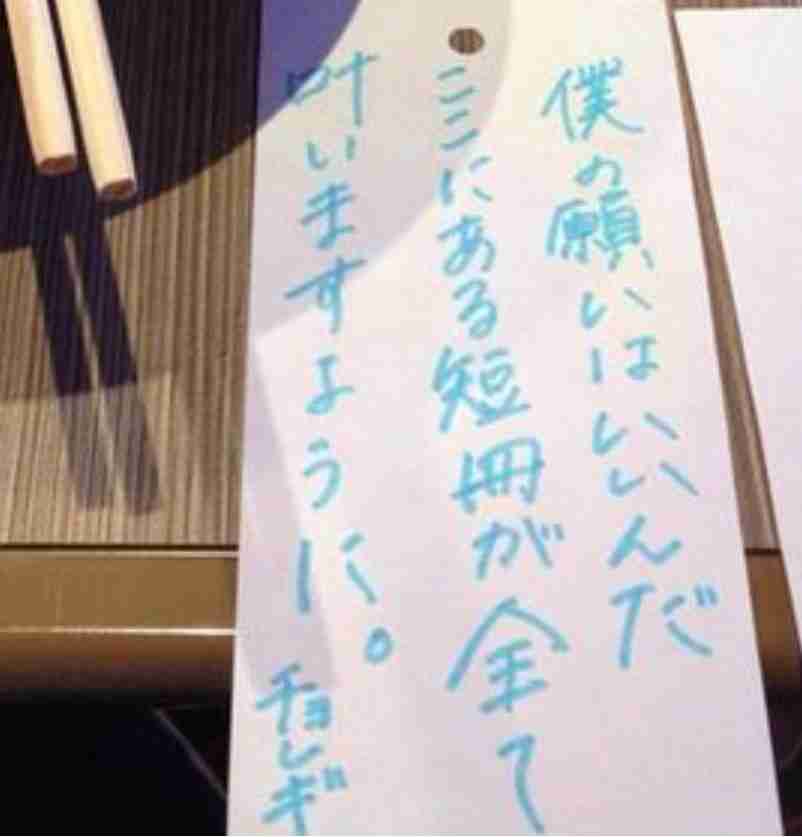 僕の願いはいいんだ
ここにある短冊が全て
叶いますように。
チョレギ